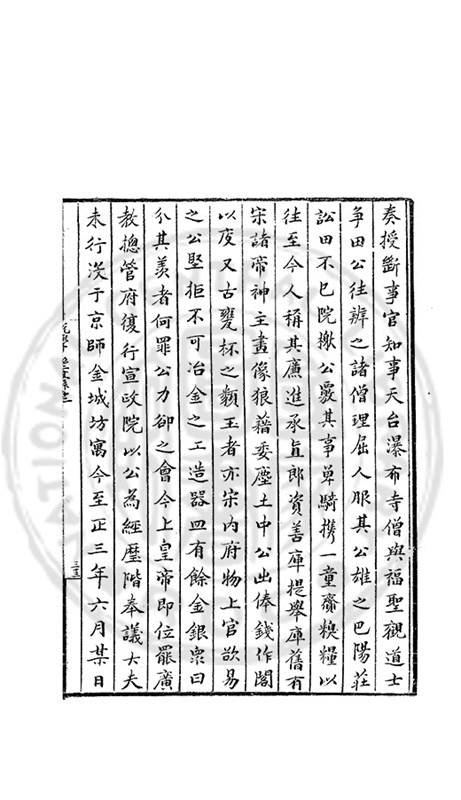 奏授斷事官知事天台瀑布寺僧與福聖觀道士
爭田公往辨之諸僧理屈人服其公雄之巴陽莊
訟田不已院檄公覈其事單騎携一童齎糗糧以
往至今人稱其廉進承直郎資善庫提舉庫舊有
宋諸帝神主畫像狼藉委塵土中公出俸錢作閣
以庋又古甕杯之類玉者亦宋內府物上官欲易
之公堅拒不可冶金之工造器皿有餘金銀衆曰
分其羨者何罪公力卻之會今上皇帝即位罷廣
教摠管府復行宣政院以公為經歷階奉議大夫
未行歿于京師金城坊寓今至正三年六月某日